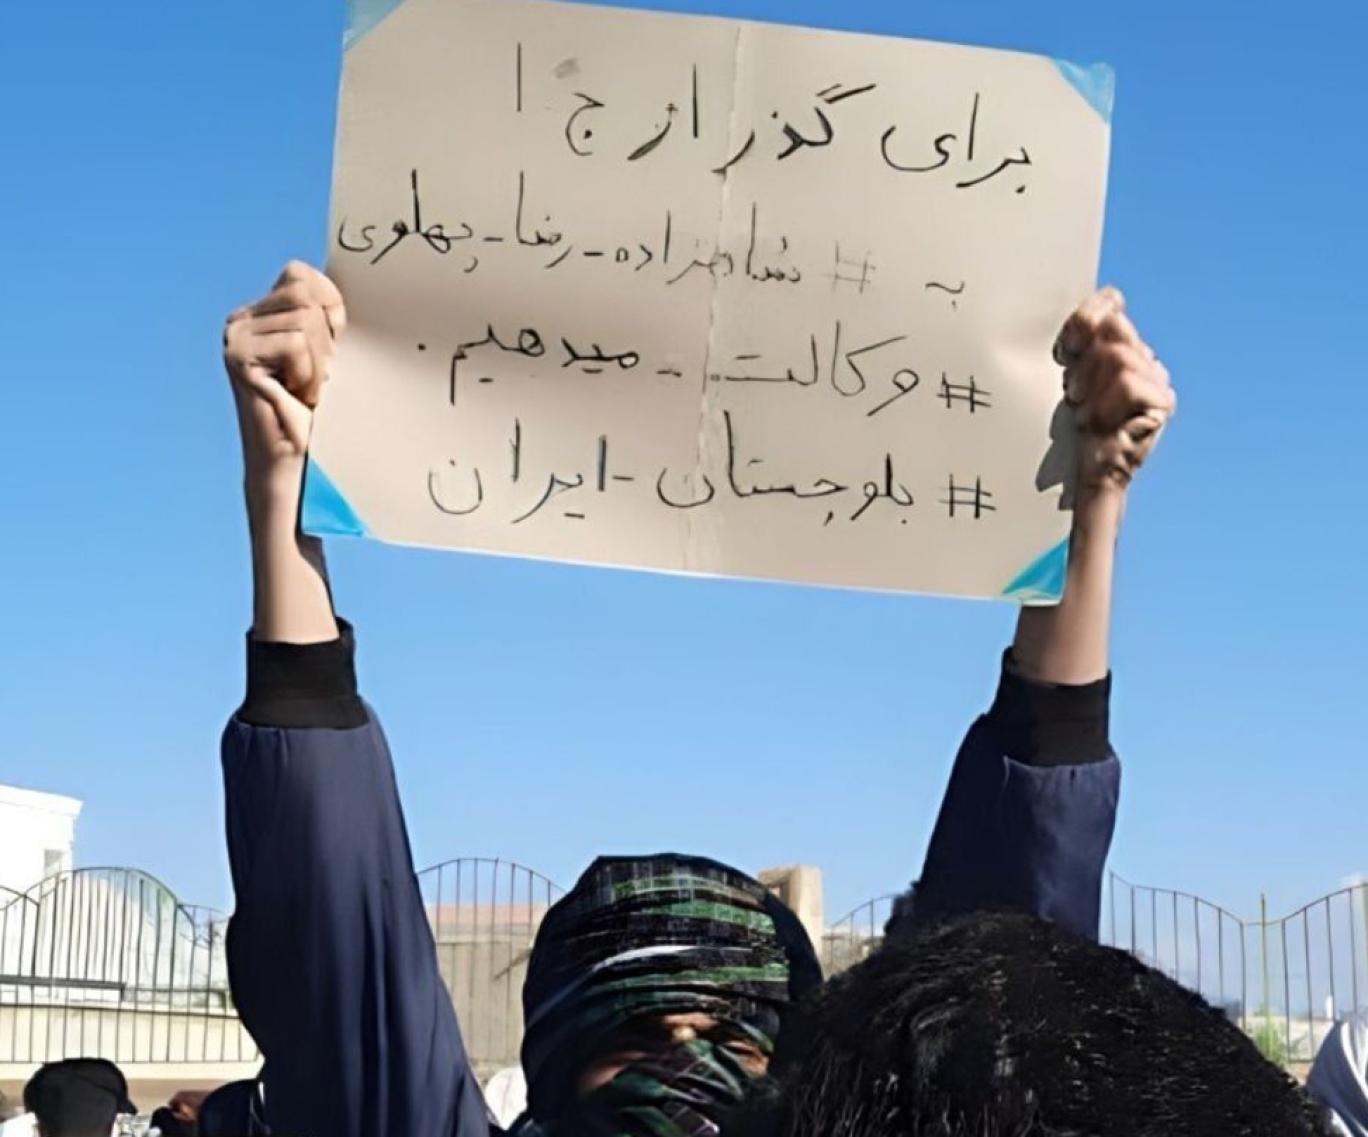 برای گذر از ج ا
به #شاهزاده-رضا-پهلوی
#وکالت-میدهیم.
#بلوچستان-ایران